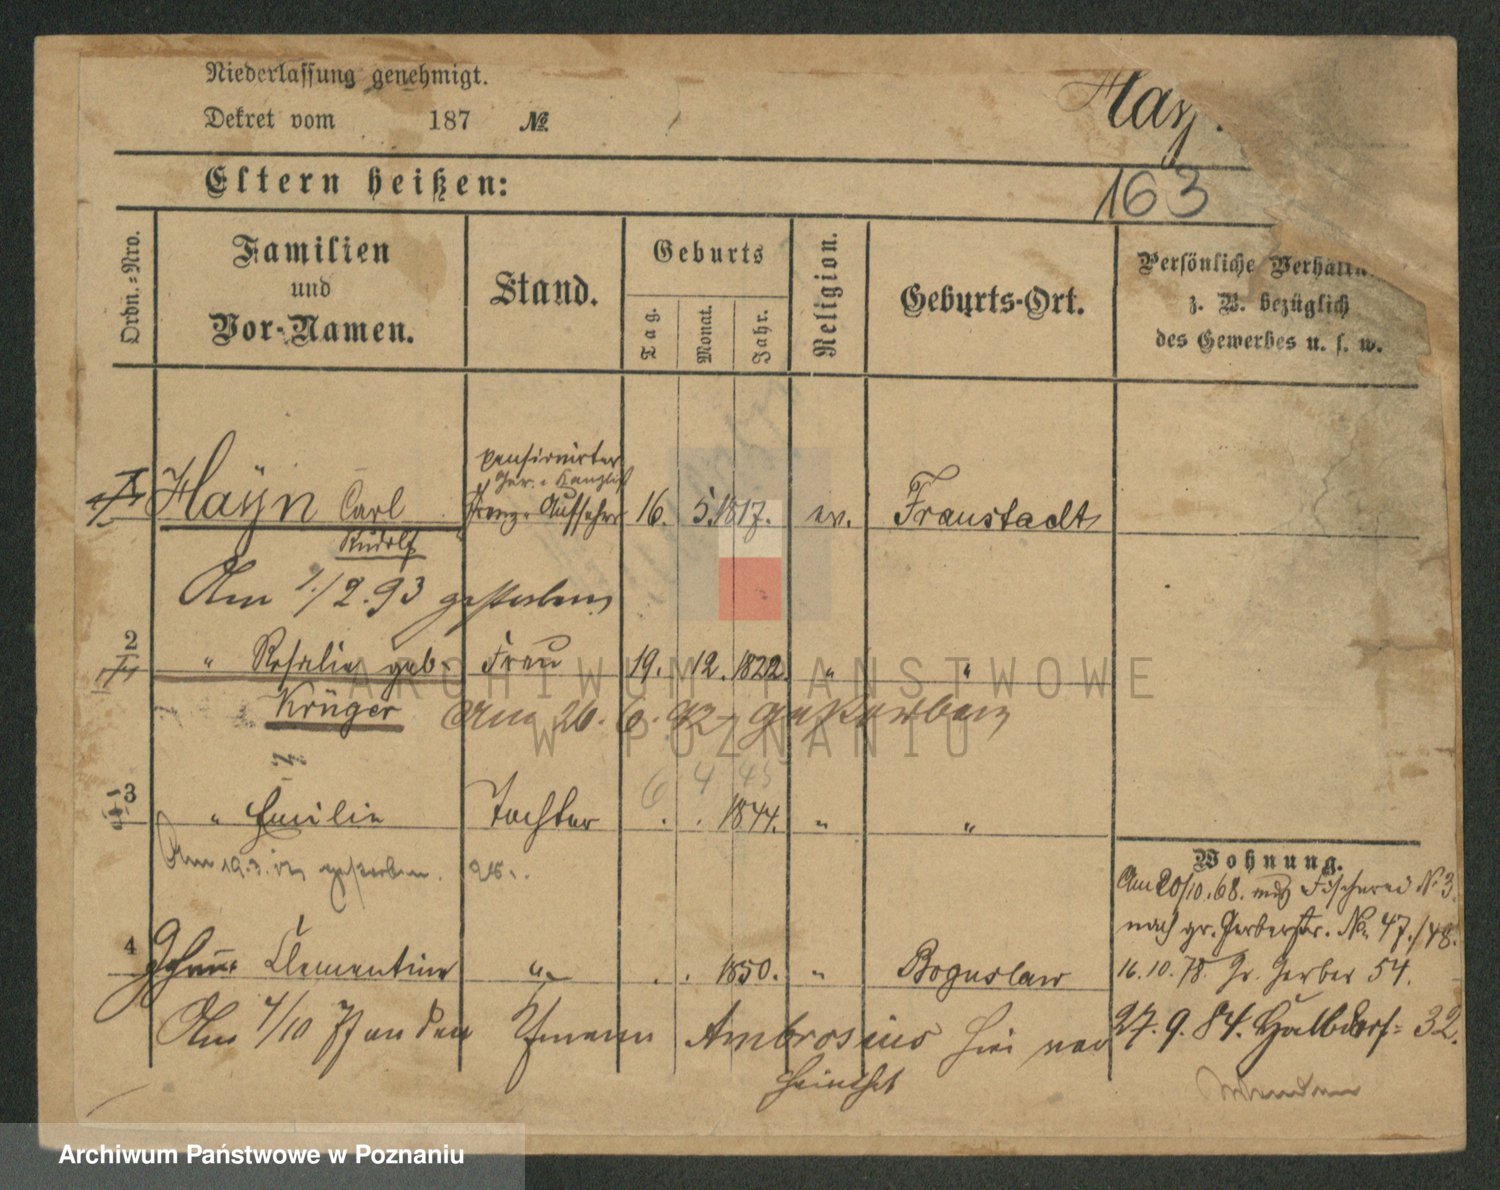 Niederlassung genehmigt.
Dekret vom 187 №
Hay
163
Eltern heißen:
Ordn.=Nro.
Familien
und
Vor-Namen.
Stand.
Geburts
Tag.
Monat.
Jahr.
Religion.
Geburts-Ort.
Persönliche
z. B. bezüglich
des Gewerbes u. s. w.
pensionirter
Ger. Kanzlist
Hayn Carl Aufseher 16. 5. 1817. ev. Fraustadt
Rudolf
Am 1./2.93 gestorben
2 " Rosalie geb. Frau 19. 12. 1822. " "
Krüger Am 26.6.92 gestorben
6 4 45
3 " Emilie Tochter . . 1844. " "
Am 19.3. gestorben.
4 Clementine " . . 1850. " Boguslaw
Am 4/10 77 an den Ambrosius hier ver
heirathet
Wohnung.
Am 20/10.68. aus Fischerei N. 3.
nach gr. Gerberstr. No. 47./48.
16.10.78. Gr. Gerber 54.
27.9.84. Halbdorf= 32.
ARCHIWUM PAŃSTWOWE
W POZNANIU
Archiwum Państwowe w Poznaniu